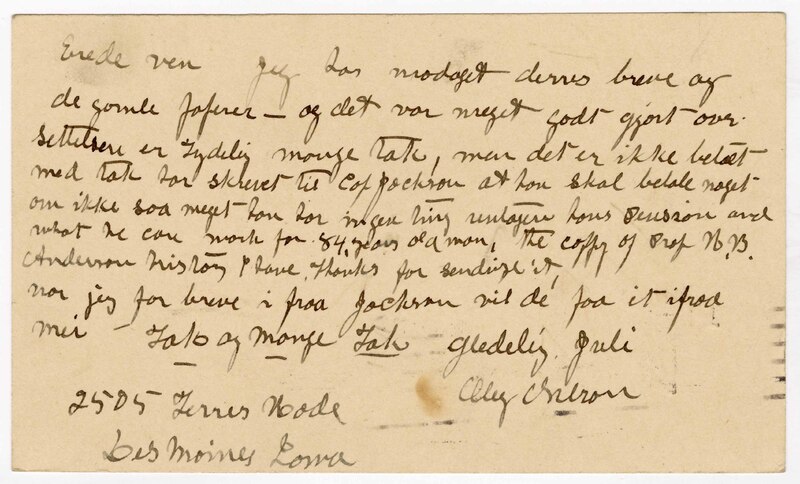 Erede ven Jeg har modaget derres breve og
de gomle Paperer — og det var meget godt gjort over-
settelsere er Tydelig mange tak, men det er ikke betalt
med tak har skrevet til Jackson at han skal betale noget
om ikke saa meget han har ingen ting untagen hans Pension and
what he can work for 84 years old man, the coppy of Prof R. B.
Anderson history I have. Thanks for sending it,
nor jeg for breve i fraa Jackson vil dé faa it ifraa
mei — Tak og Mange Tak gledelig Juli
2505 Terres Rode
Des Moines Iowa